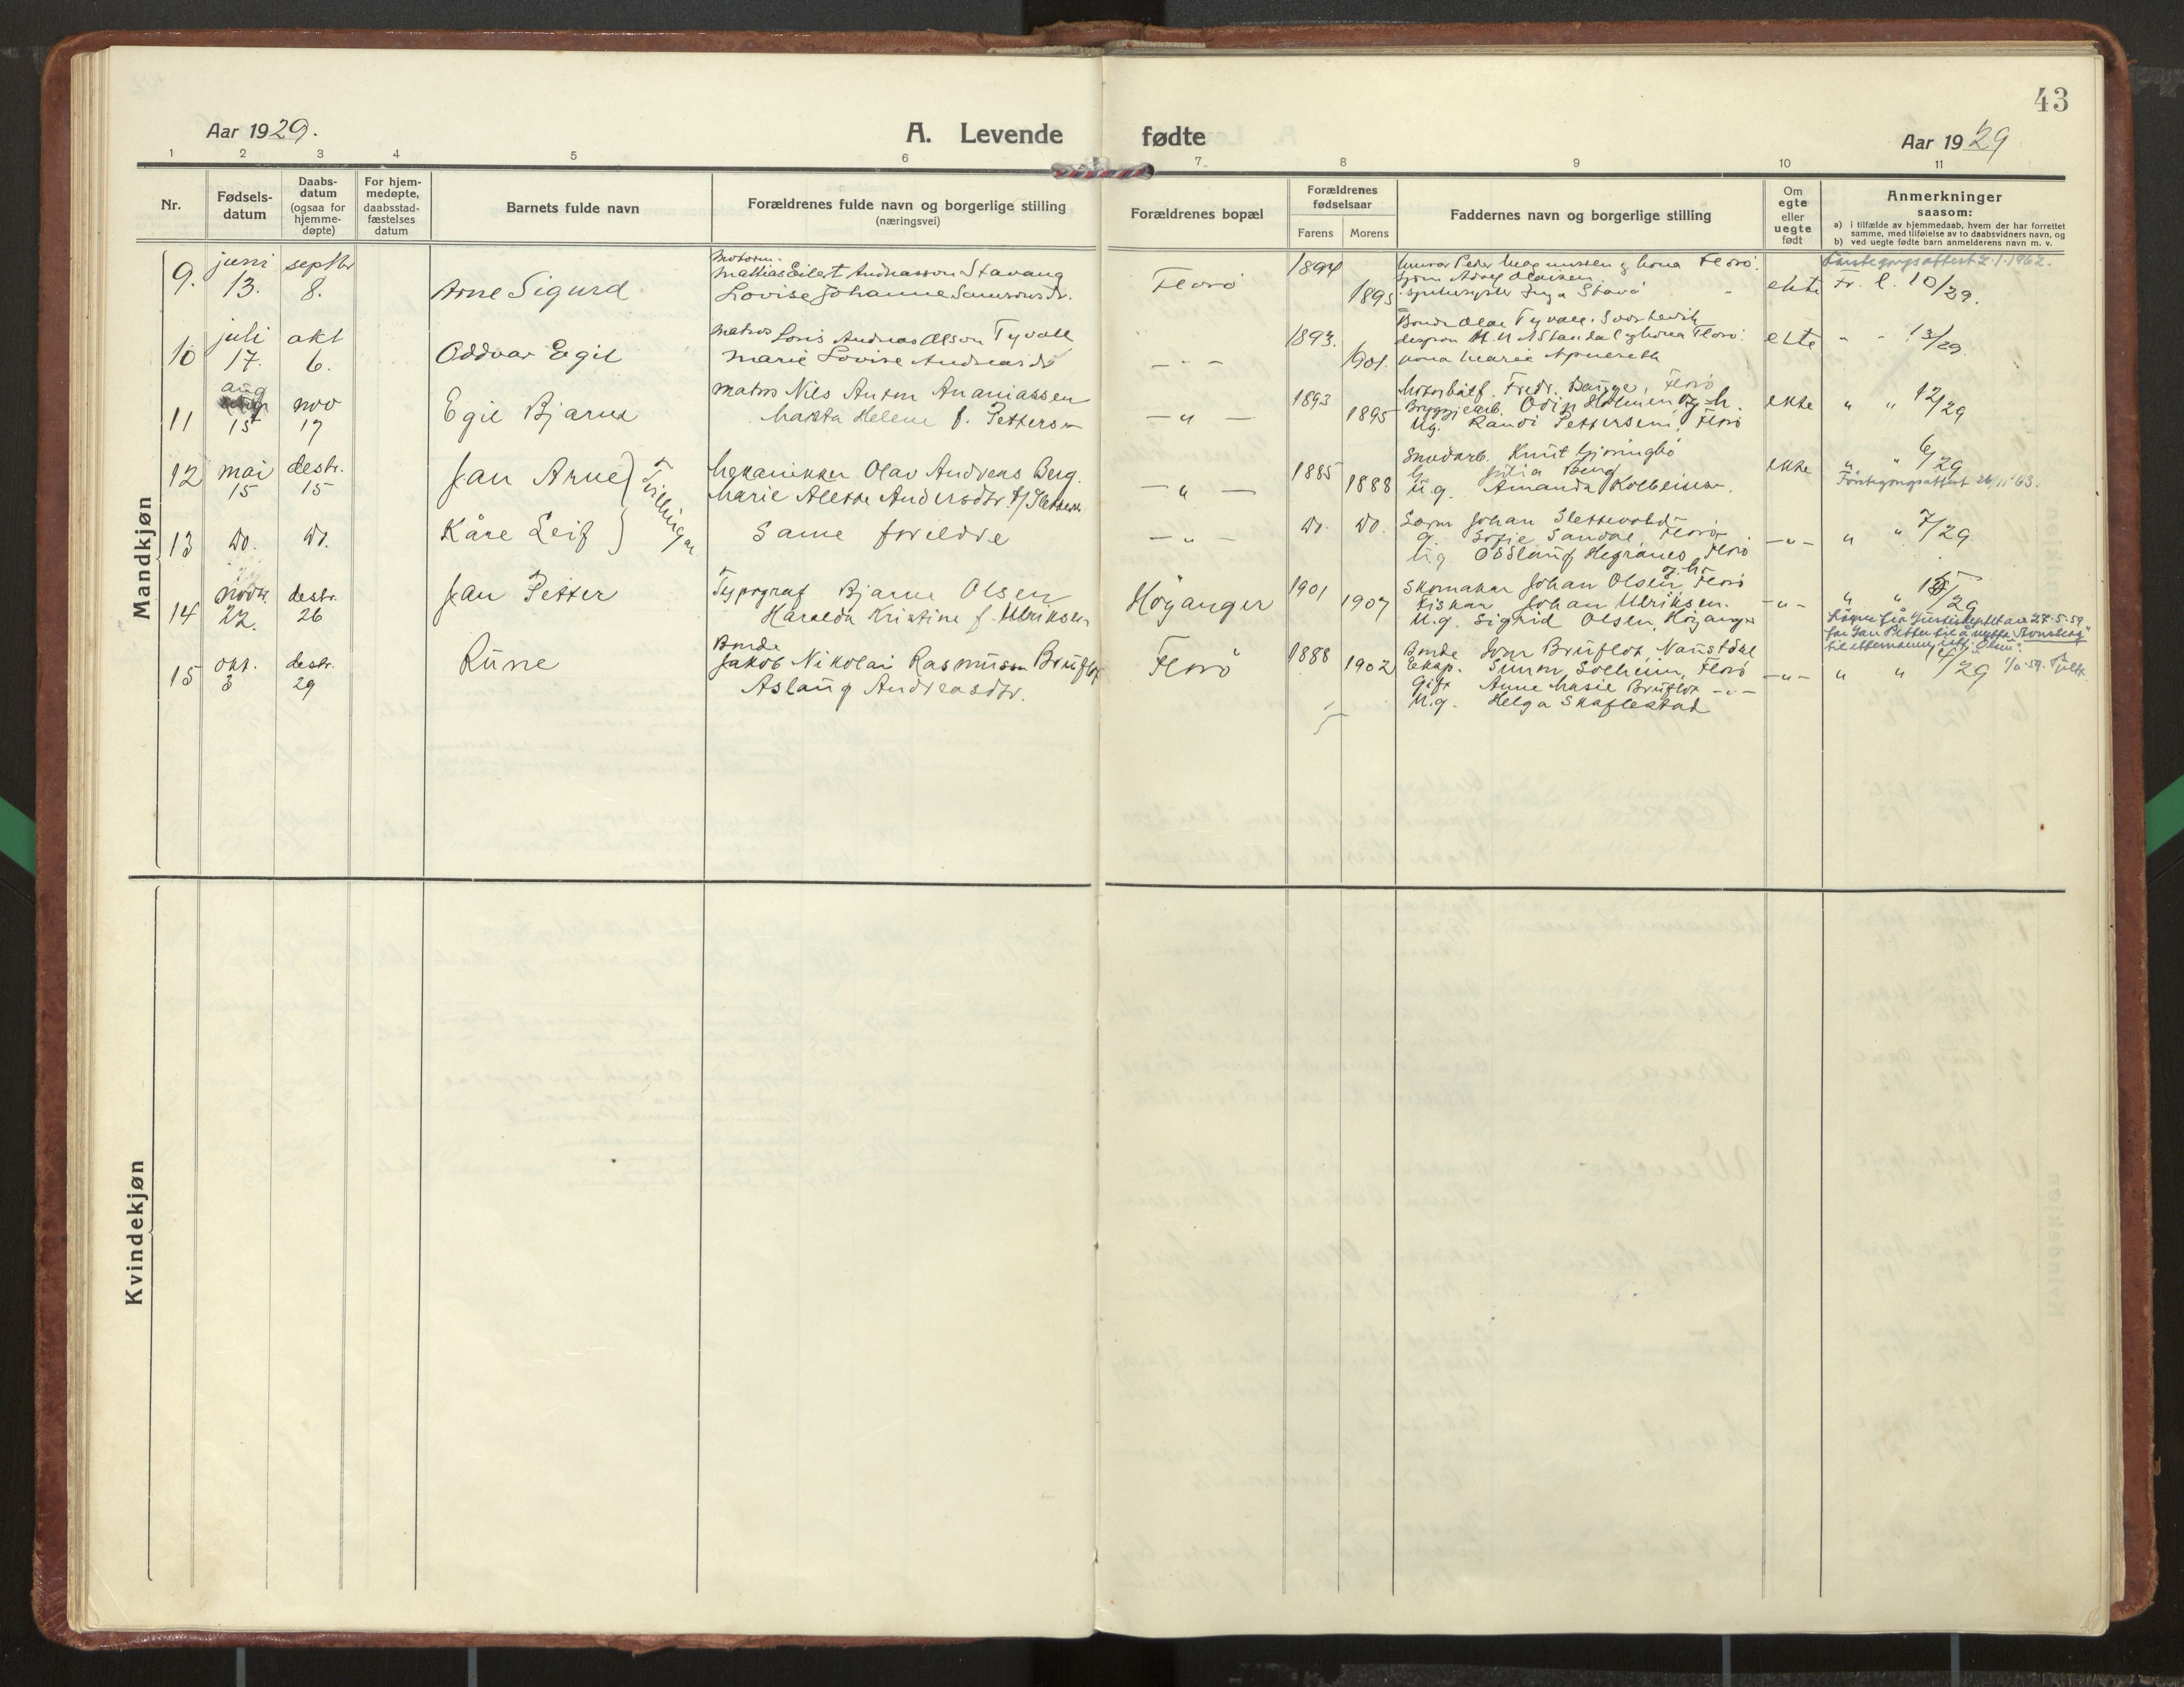 43
Aar 1929.
A. Levende fødte
Aar 1929
1 2 3 4 5 6 7 8 9 10 11
Nr.
Fødsels-
datum
Daabs-
datum
(ogsaa for
hjemme-
døpte)
For hjem-
medøpte,
daabsstad-
fæstelses
datum
Barnets fulde navn
Forældrenes fulde navn og borgerlige stilling
(næringsvei)
Forældrenes bopæl
Forældrenes
fødselsaar
Farens Morens
Faddernes navn og borgerlige stilling
Om
egte
eller
uegte
født
Anmerkninger
saasom:
a) i tilfælde av hjemmedaab, hvem der har forrettet
samme, med tilføielse av to daabsvidners navn, og
b) ved uegte fødte barn anmelderens navn m. v.
Mandkjøn
9. juni 13. septbr 8.
Arne Sigurd
Mathias Eilert Andreasson Stavang
Lovise Johanne Samsonsdr.
Florö
1894 1895
Peder Magnussen g kona Florö.
ekte
Fr. l. 10/29.
Förstegongsattest 2.1.1962.
10 juli 17. okt 6.
Oddvar Egil
Matros Andreas Olsson Tyvoll
Marie Lovise Andreasdr
— " —
1893. 1901.
Bonde Olav Tyvoll.
kona Marie
ekte
" " 13/29.
11 aug 15 nov 17
Egil Bjarne
Matros Nils Anton Ananiassen
Marta Helene f. Petterson
— " —
1893 1895
Fredr. Bauge, Florö
Bryggjearb. Odin Holmen og h.
Ug. Randi Pettersen, Florö
ekte
" " 12/29
12 mai 15 destr. 15
Jan Arne
Trillingar
Mekanikker Olav Andreas Berg.
Marie Alette Andersdtr.
— " —
1885 1888
Snedarb. Knut
h. Berg
U.g. Amanda Kolbeinsen
ekte
" " 6/29
Förstegongsattest 26/11 63.
13 Do. Do.
Kåre Leif
Same foreldre
— " —
Do. Do.
Johan Slettevold
g. Sofie Sandal, Florö
Ug Oddlaug Hegranes, Florö
— " —
" " 7/29
14 novbr. 22. destr. 26
Jan Petter
Typograf Bjarne Olsen
Haralda Kristine f. Ulriksen
Höyanger
1901 1907
og h.
Skomakar Johan Olsen, Florö
Fiskar Johan Ulriksen.
U.g. Sigrid Olsen, Höyanger
— " —
" " 15/29
27-5-59
for Jan Petter til å nytte "Aunsberg"
15 okt. 3 destr. 29
Rune
Bonde
Jakob Nikolai Rasmusson Bruflot
Aslaug Andreasdtr.
Florö
1888 1902
Bonde Bruflot, Naustdal
Eksp. Sunm. Solheim, Florö
Gift Anne Marie Bruflot — " —
U.g. Helga Skaflestad
— " —
" " 14/29
Kvindekjøn